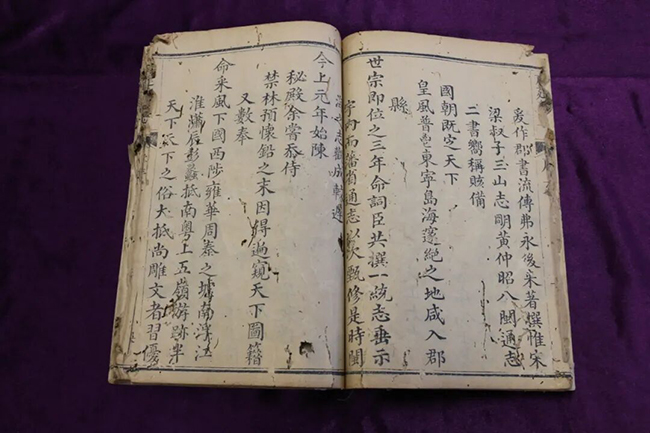 爰作郡書流傳弗永後來著撰惟宋
梁叔子三山志明黃仲昭八閩通志
二書嚮稱賅備
國朝既定天下
皇風普東寧島海邃絕之地咸入郡
縣
世宗即位之三年命詞臣共撰一統志垂示
宇內而藩省通志以次甄修是時閩
志
今上元年始陳
秘殿余嘗忝侍
禁林預懷鉛之末因得遍窺天下圖籍
又數奉
命采風下國西陟雍華周秦之墟南浮江
淮彭蠡抵南粵上五嶺游跡半
天下天下之俗大抵尚雕文者習優